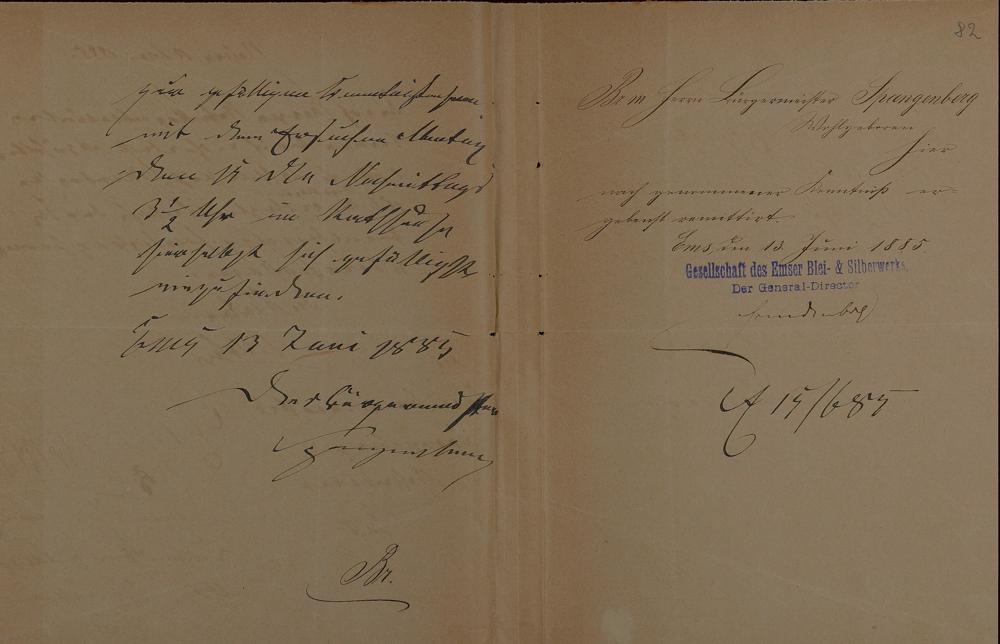 zur gefälligen Kenntnißnahme
mit dem Ersuchen Montag
den 15 d. M. Nachmittags
3 1/2 Uhr im Rathhause
hierselbst sich gefälligst
einzufinden.
Ems 13 Juni 1885
Der Bürgermeister
Spangenberg
Br.
82
Br m Herrn Bürgermeister Spangenberg
Wohlgeboren
hier
nach genommener Kenntniß er-
gebenst remittirt.
Ems, den 13. Juni 1885.
Gesellschaft des Emser Blei- & Silberwerks.
Der General-Director
15/6 85